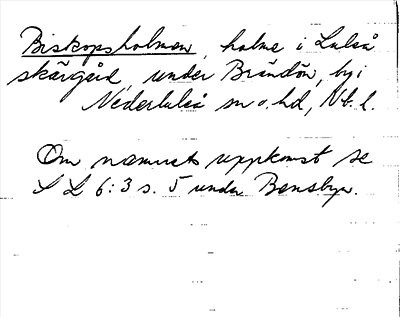 Biskopsholmen, holme i Luleå
skärgård, under Brändön, by i
Nederluleå sn o. hd, Nb. l.
Om namnets uppkomst se
S L 6:3 s. 5 under Bensbyn.